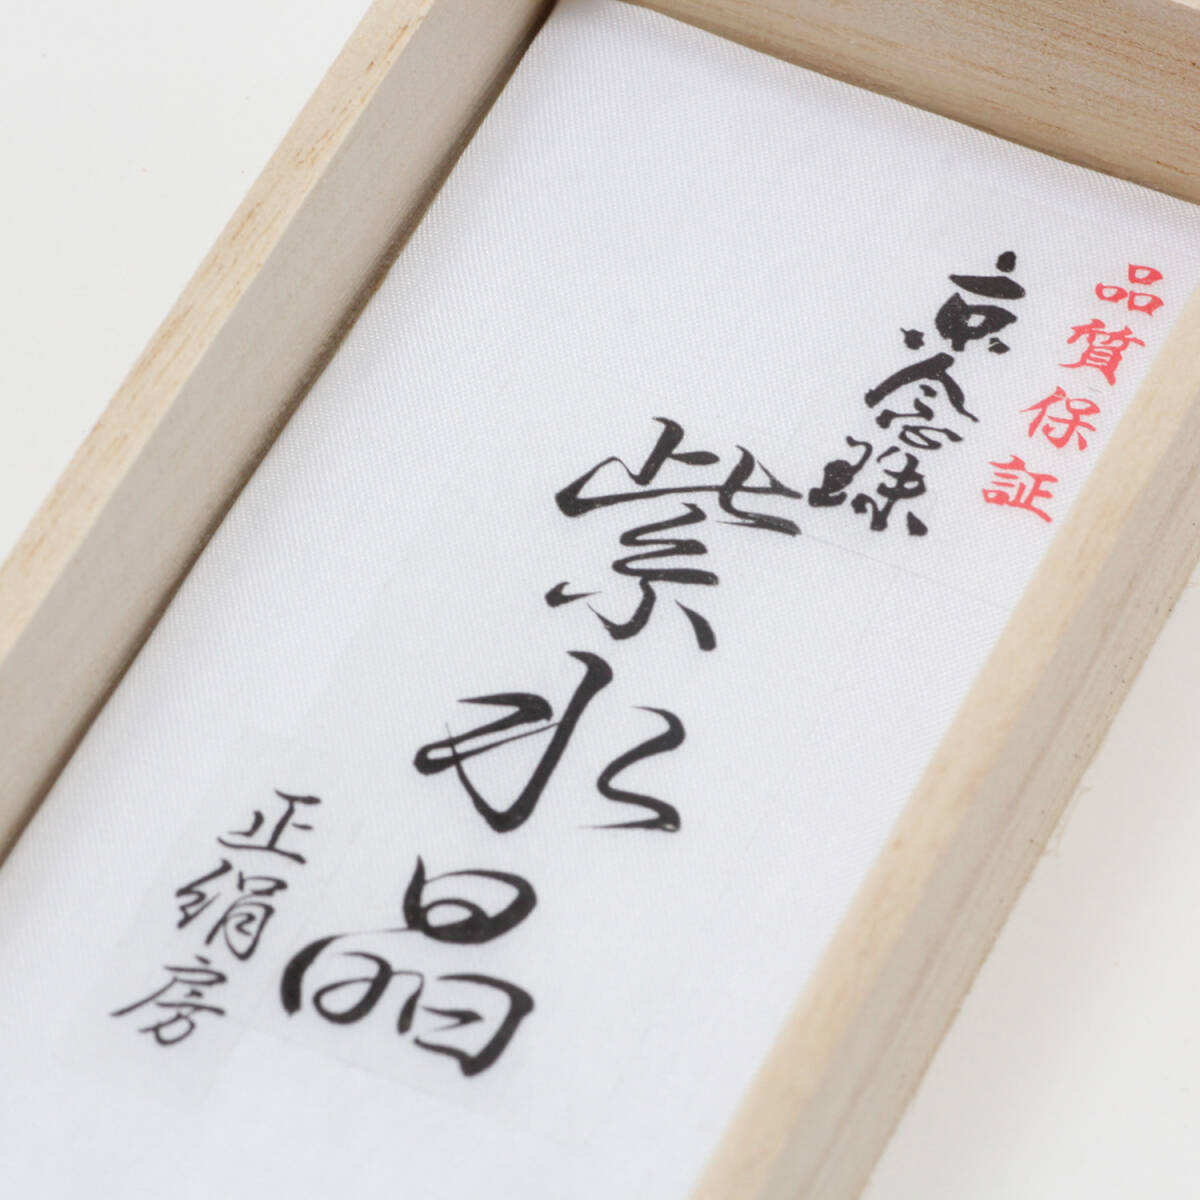 品質保証
京念珠
紫水晶
正絹房